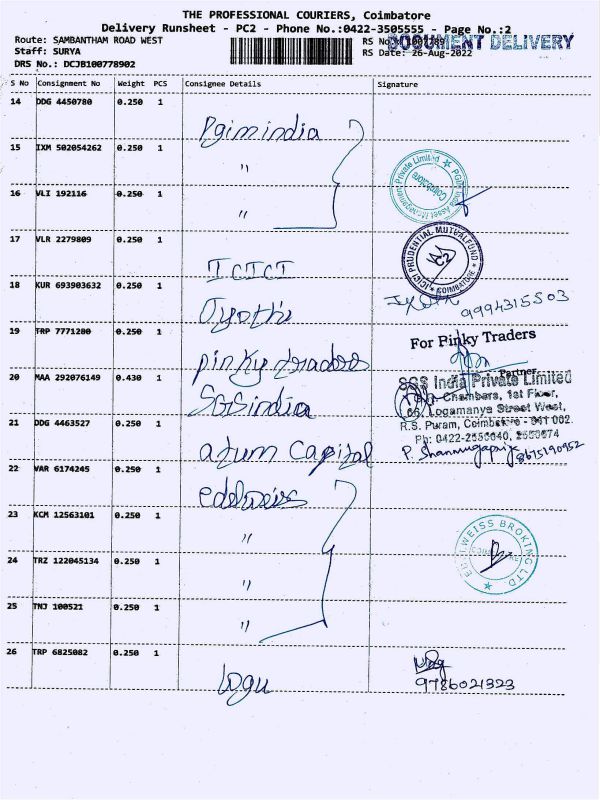 THE PROFESSIONAL COURIERS, Coimbatore
Delivery Runsheet - PC2 - Phone No.:0422-3505555 - Page No.:2
Route: SAMBANTHAM ROAD WEST
DOCUMENT DELIVERY
Staff: SURYA
RS Date: 26-Aug-2022
DRS No.: DCJB100778902
S No Consignment No Weight PCS Consignee Details Signature
14 DDG 4450780 0.250 1
Pgim india
15 IXM 502054262 0.250 1
"
16 VLI 192116 0.250 1
"
17 VLR 2279809 0.250 1
ICICI
ICICI PRUDENTIAL MUTUAL FUND
C2
COIMBATORE
18 KUR 693903632 0.250 1
Jyothi
9994315503
19 TRP 7771280 0.250 1
pinky traders
For Pinky Traders
Partner
20 MAA 292076149 0.430 1
SGS india
SGS India Private Limited
Chambers, 1st Floor,
66, Logamanya Street West,
R.S. Puram, Coimbatore - 641 002.
21 DDG 4463527 0.250 1
atum Capital
8675190952
22 VAR 6174245 0.250 1
edelweiss
23 KCM 12563101 0.250 1
"
EDELWEISS BROKING LTD
24 TRZ 122045134 0.250 1
"
25 TNJ 100521 0.250 1
"
26 TRP 6825082 0.250 1
logu
9786021323